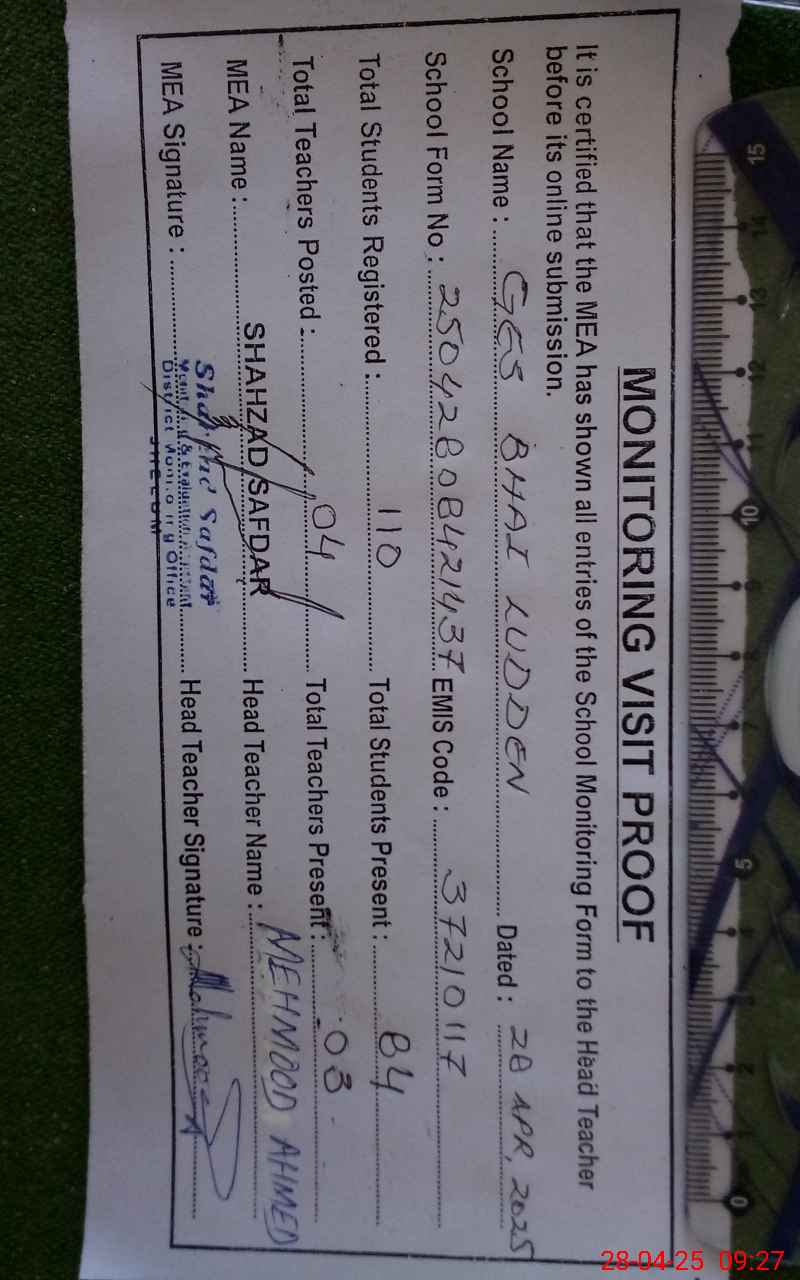 MONITORING VISIT PROOF
It is certified that the MEA has shown all entries of the School Monitoring Form to the Head Teacher
before its online submission.
School Name : GES BHAI LUDDEN Dated : 28 APR, 2025
School Form No : 25042808421437 EMIS Code : 37210117
Total Students Registered : 110 Total Students Present : 84
Total Teachers Posted : 04 Total Teachers Present : 03
MEA Name : SHAHZAD SAFDAR Head Teacher Name : MEHMOOD AHMED
MEA Signature : Head Teacher Signature :
Shahzad Safdar
District Monitoring Office
JHELUM
15 14 13 12 11 10 9 8 7 6 5 4 3 2 1 0
28-04-25 09:27